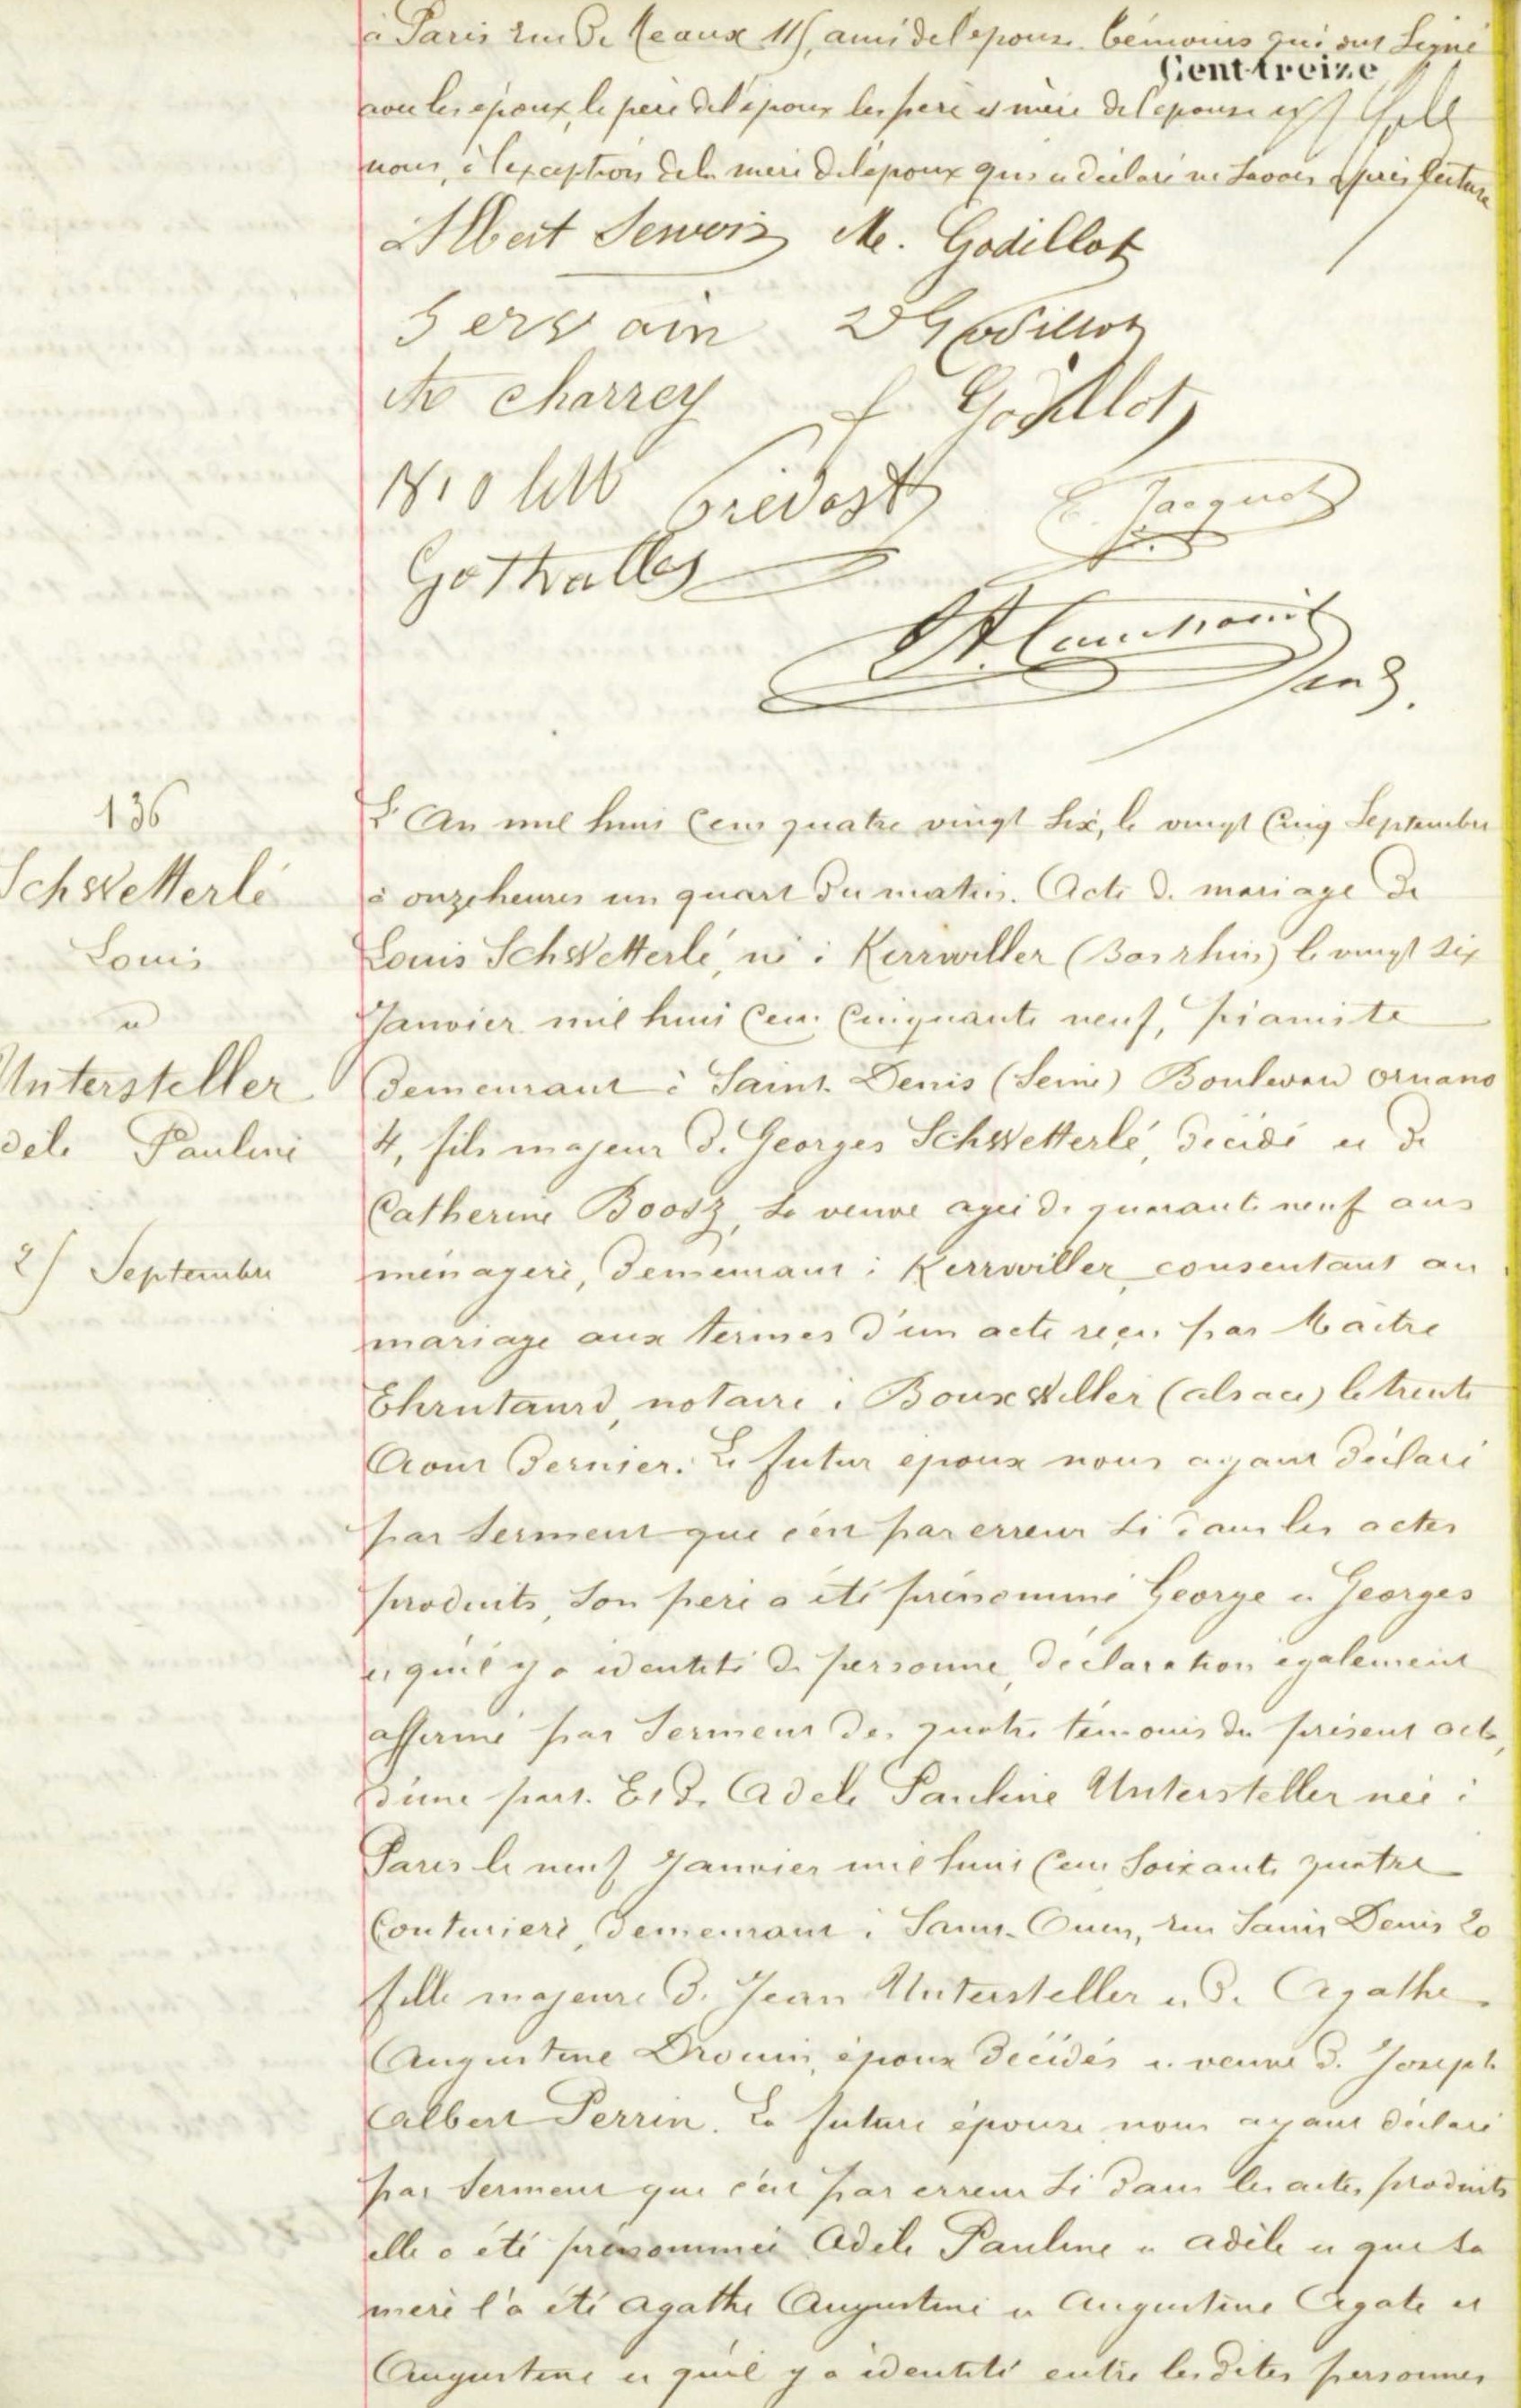 à Paris rue De Meaux 115, ami de l'épouse. témoins qui ont signé
Cent-treize
avec les époux, le père de l'époux les père et mère de l'épouse et
nous, à l'exception de la mère de l'époux qui a déclaré ne savoir après lecture
Albert Servoin M. Godillot
Servain Godillot
Charrey f. Godillot
Violett Prévost E. Jacquot
Gothalles
136
L'An mil huit cent quatre vingt six, le vingt cinq Septembre
Schwetterlé
à onze heures un quart du matin. Acte de mariage de
Louis
Louis Schwetterlé, né à Kerrwiller (Bas rhin) le vingt six
et
Janvier mil huit cent cinquante neuf, pianiste
Untersteller
demeurant à Saint-Denis (Seine) Boulevard ornano
dèle Pauline
4, fils majeur de Georges Schwetterlé, décédé et de
Catherine Boosz, sa veuve agée de quarante neuf ans
25 Septembre
ménagère, demeurant à Kerrwiller, consentant au
mariage aux termes d'un acte reçu par Maître
notaire à Bouxwiller (alsace) le trente
Aout dernier. Le futur époux nous ayant déclaré
par serment que c'est par erreur si dans les actes
produits, son père a été prénommé George et Georges
et qu'il y a identité de personne, déclaration également
affirmé par serment des quatre témoins du présent acte,
d'une part. Et de Adèle Pauline Untersteller née à
Paris le neuf Janvier mil huit cent soixante quatre
Couturière, demeurant à Saint-Ouen, rue Saint Denis 20
fille majeure de Jean Untersteller et de Agathe
Augustine Drouin, époux décédés et veuve de Joseph
Albert Perrin. La future épouse nous ayant déclaré
par serment que c'est par erreur si dans les actes produits
elle a été prénommée Adèle Pauline et adèle et que sa
mère l'a été agathe Augustine et Augustine Agate et
Augustine et qu'il y a identité entre lesdites personnes